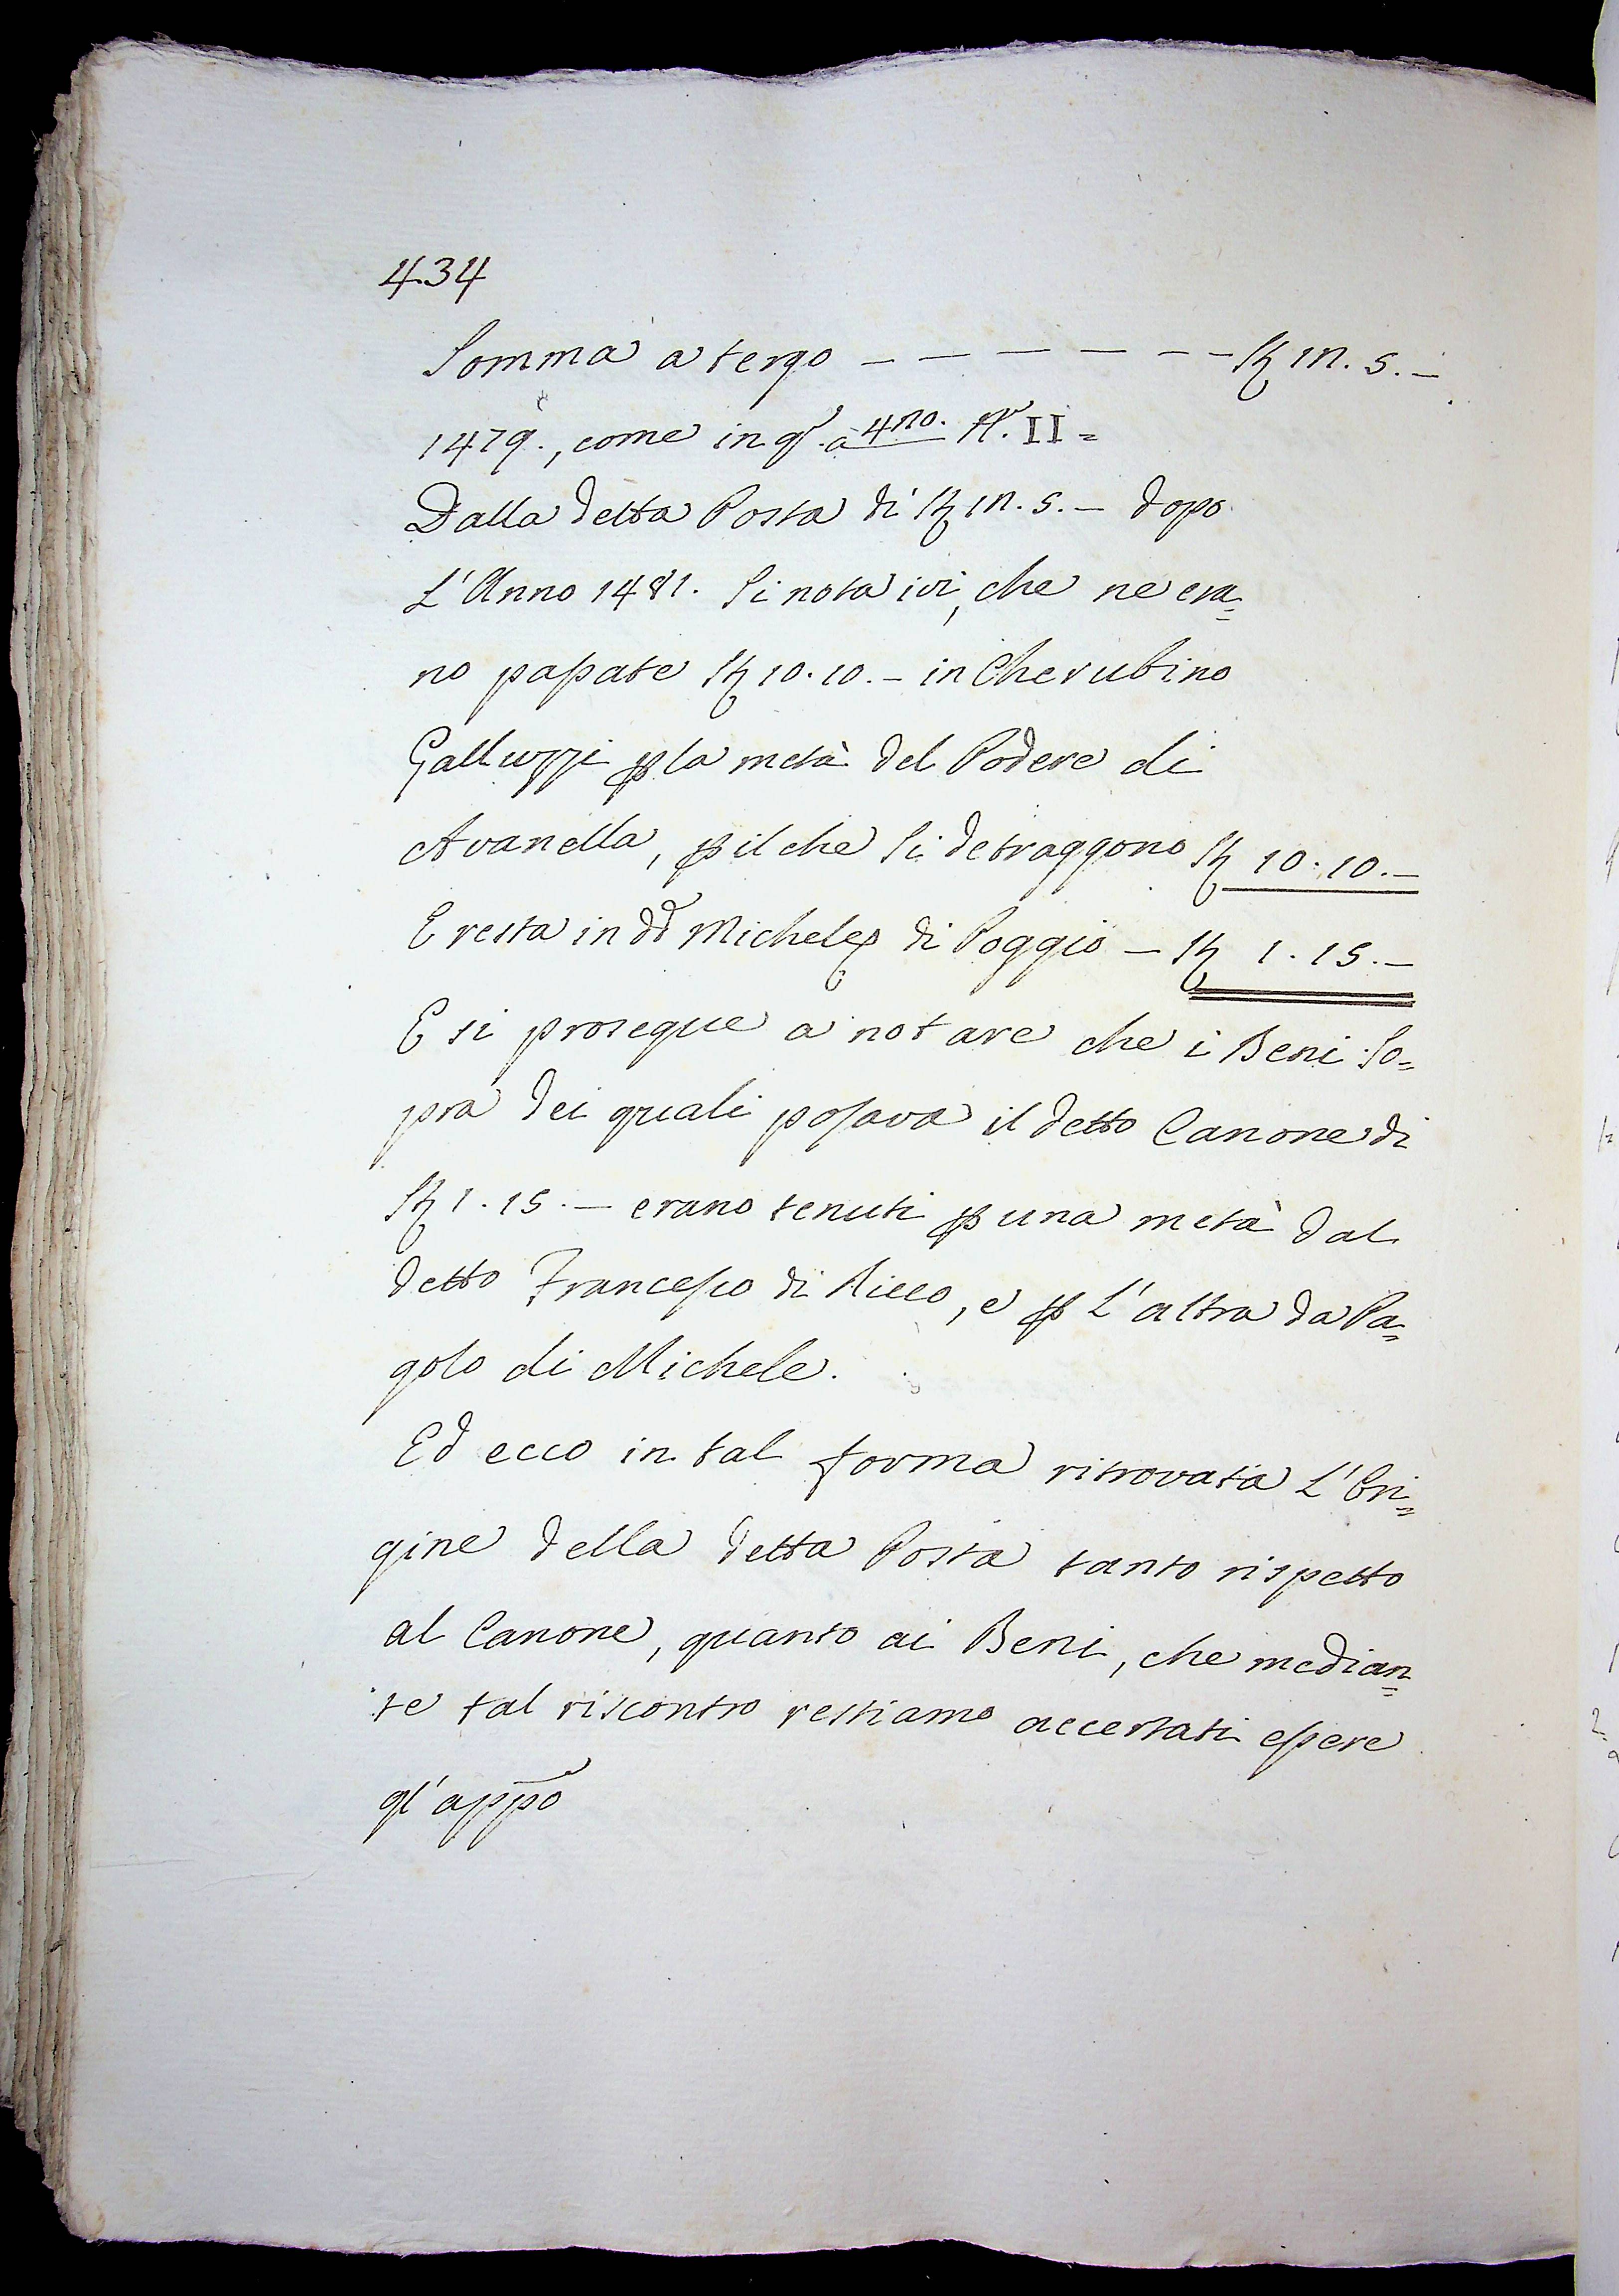 434
Somma a tergo – – – – – – St 12. 5. –
1479., come in qº. a 4no. Nº. II =
Dalla detta Posta di St 12. 5. – dopo
L'Anno 1481. Si nota ivi, che ne era=
no passate St 10. 10. – in Cherubino
Galluzzi ꝑ la metà del Podere di
Avanella, ꝑ il che Si detraggono St 10. 10. –
E resta in dº Michele di Poggio – St 1. 15. –
E si prosegue a notare che i Beni So=
pra dei quali posava il detto Canone di
St 1. 15. – erano tenuti ꝑ una metà dal
detto Francesco di Ricco, e ꝑ L'altra da Pa=
golo di Michele.
Ed ecco in tal forma ritrovata L'Ori=
gine della detta Posta tanto rispetto
al Canone, quanto ai Beni, che median=
te tal riscontro restiamo accertati essere
gl'appõ